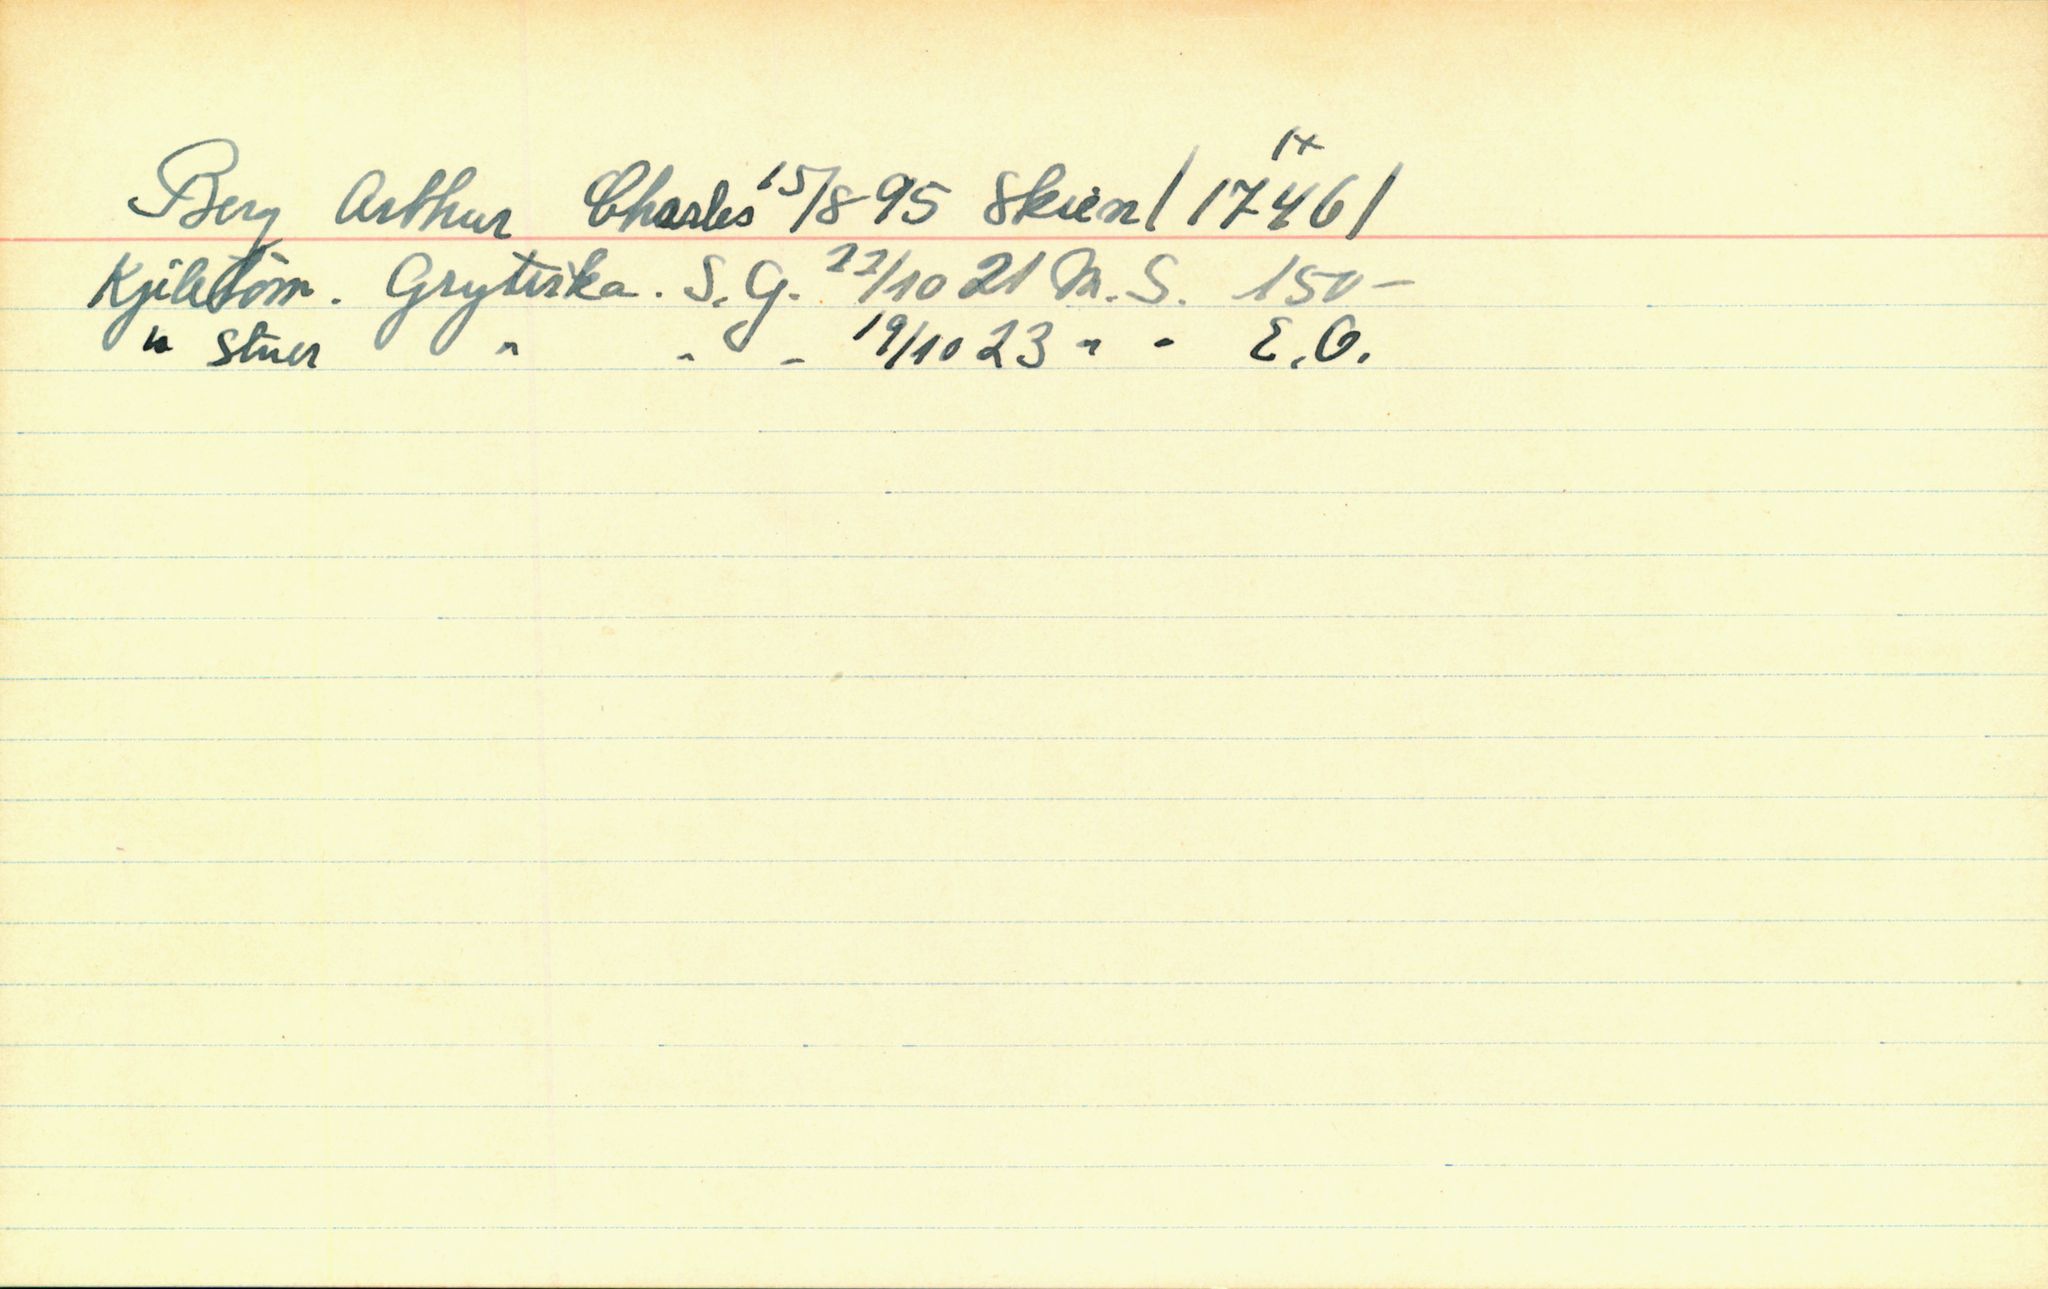 1x
Berg Arthur Charles 15/8-95 Skien / 1746 /
Kjeletøm. Grytvika. S. G. 22/10 21 M. S. 150-
" Stuer " " - 19/10 23 " - E. O.